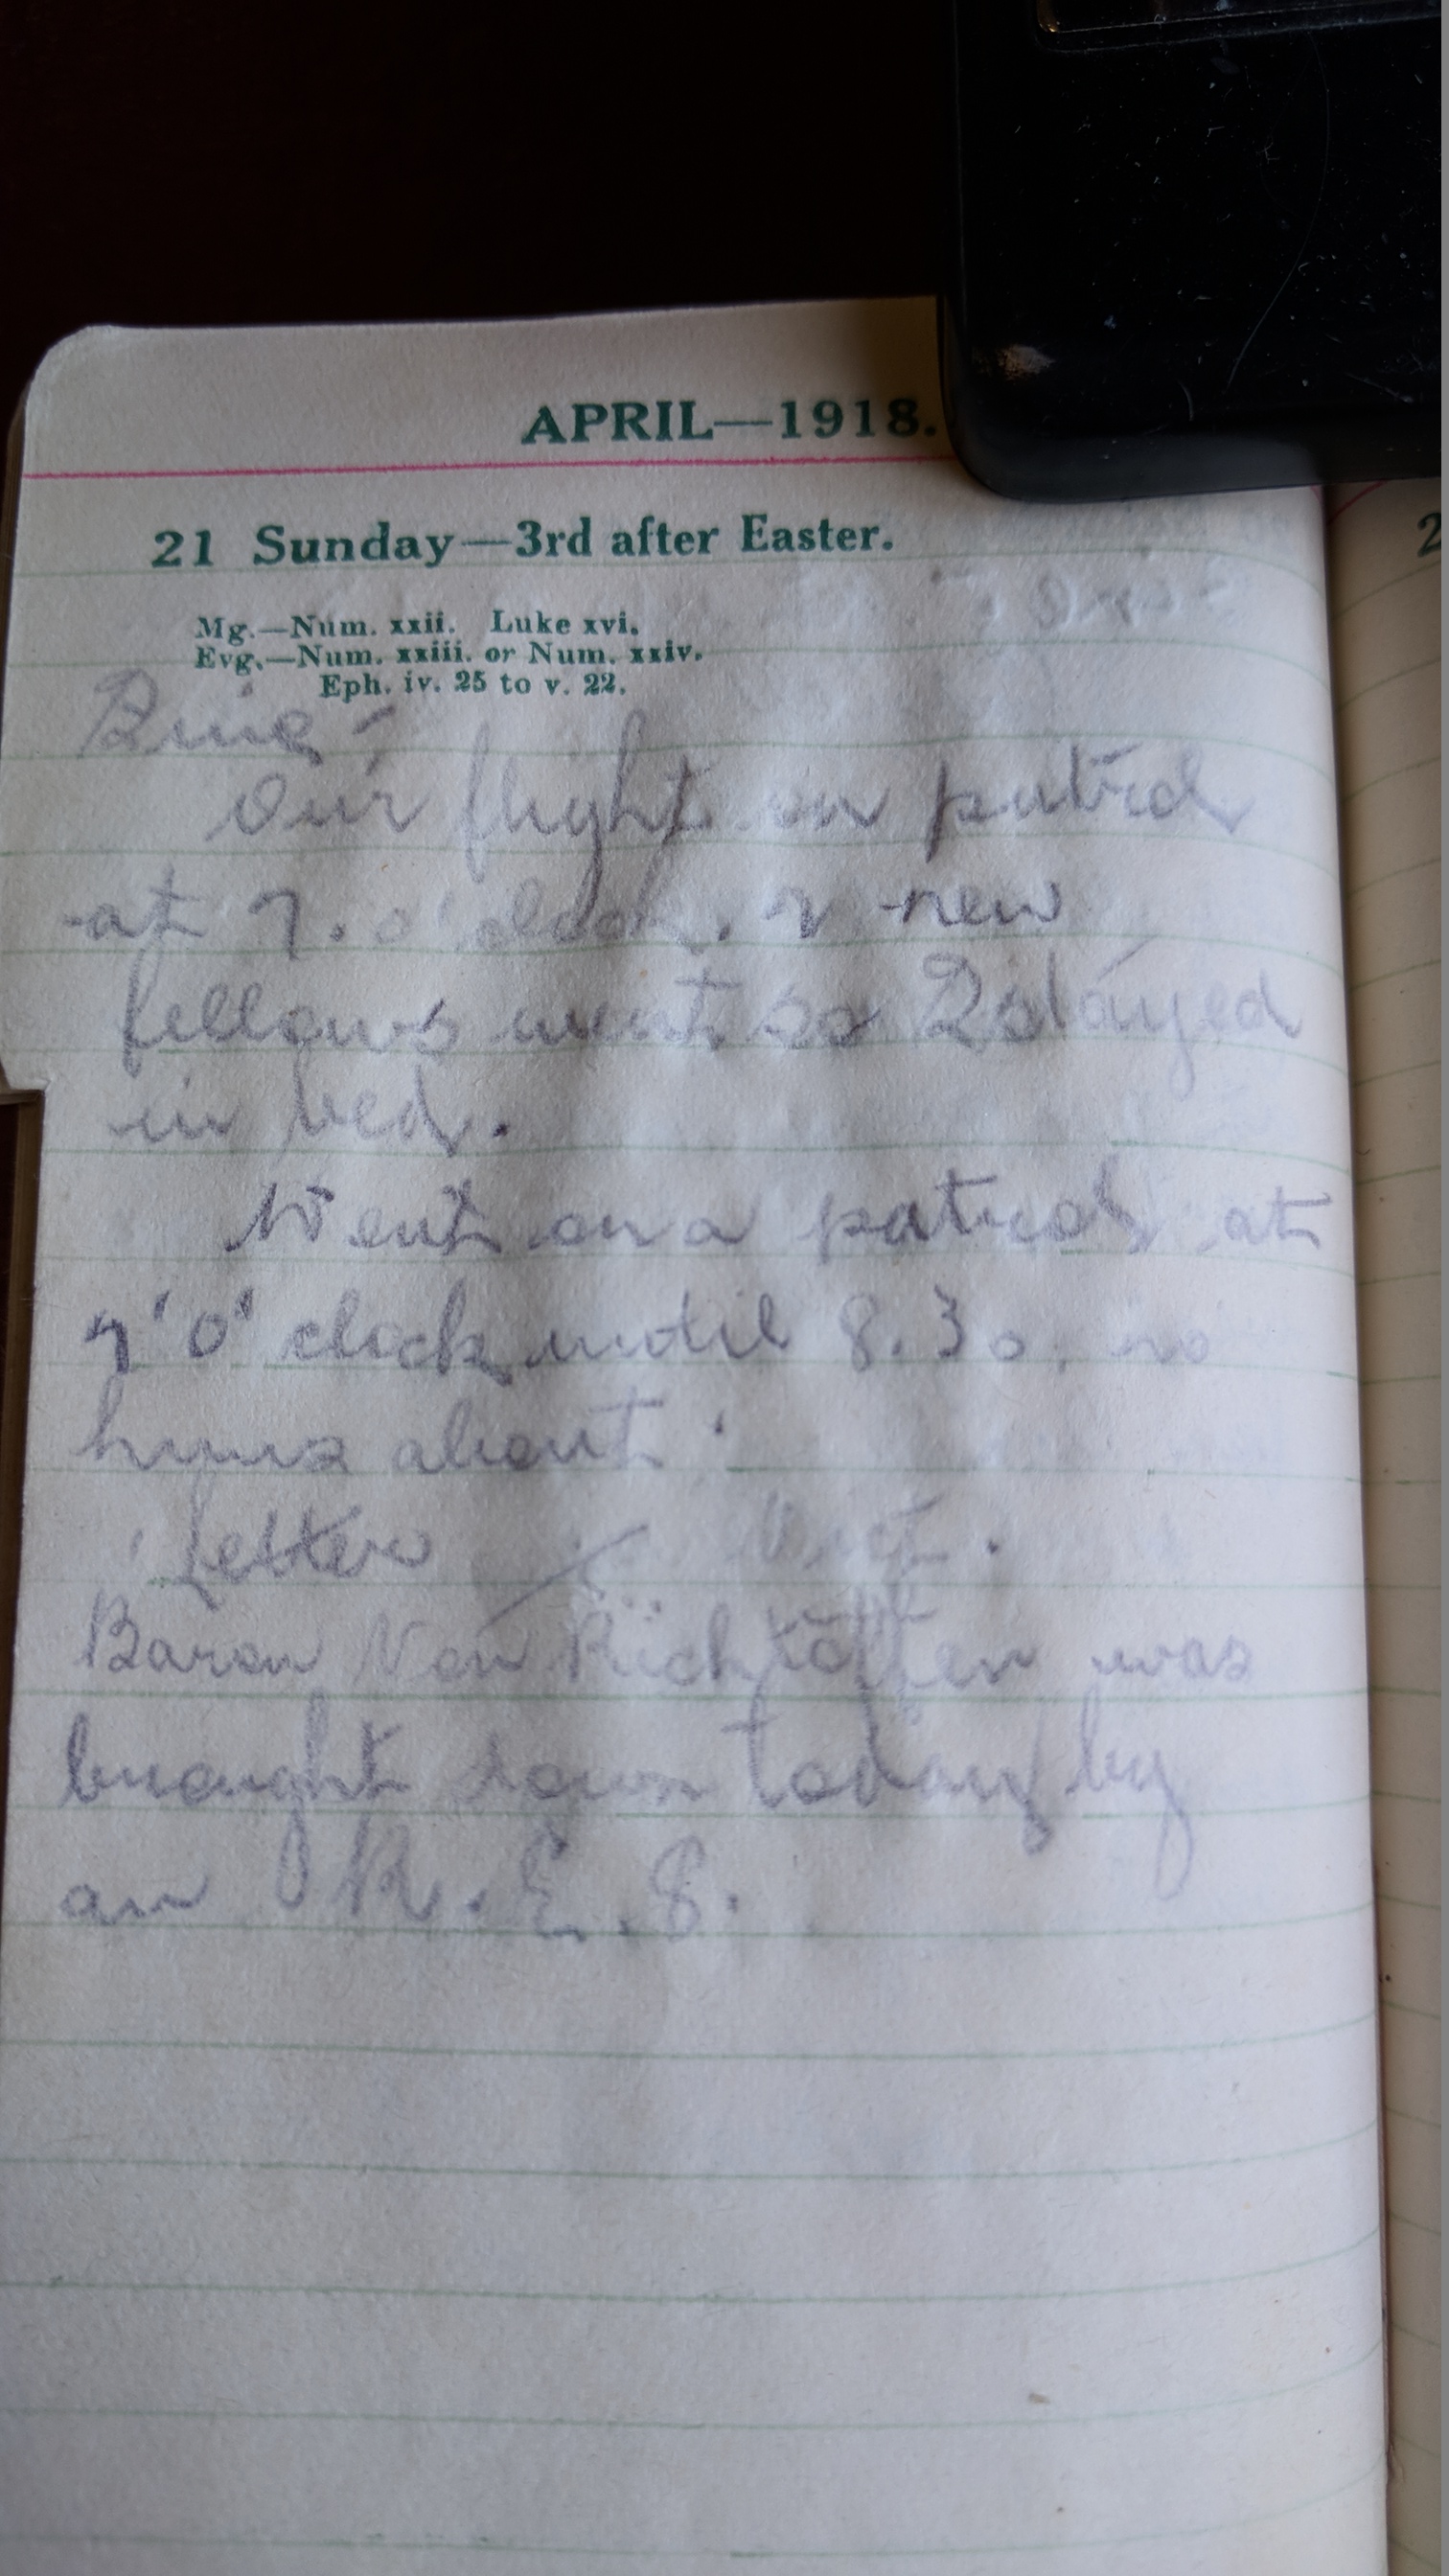 APRIL—1918.
21 Sunday—3rd after Easter.
Mg.—Num. xxii. Luke xvi.
Evg.—Num. xxiii. or Num. xxiv.
Eph. iv. 25 to v. 22.
Our flight on patrol
at 7. o'clock. 2 new
fellows went so I stayed
in bed.
Went on a patrol at
7 'o' clock until 8.30. no
huns about.
Letter
Baron Von Richtöffen was
brought down today by
an R.E.8.